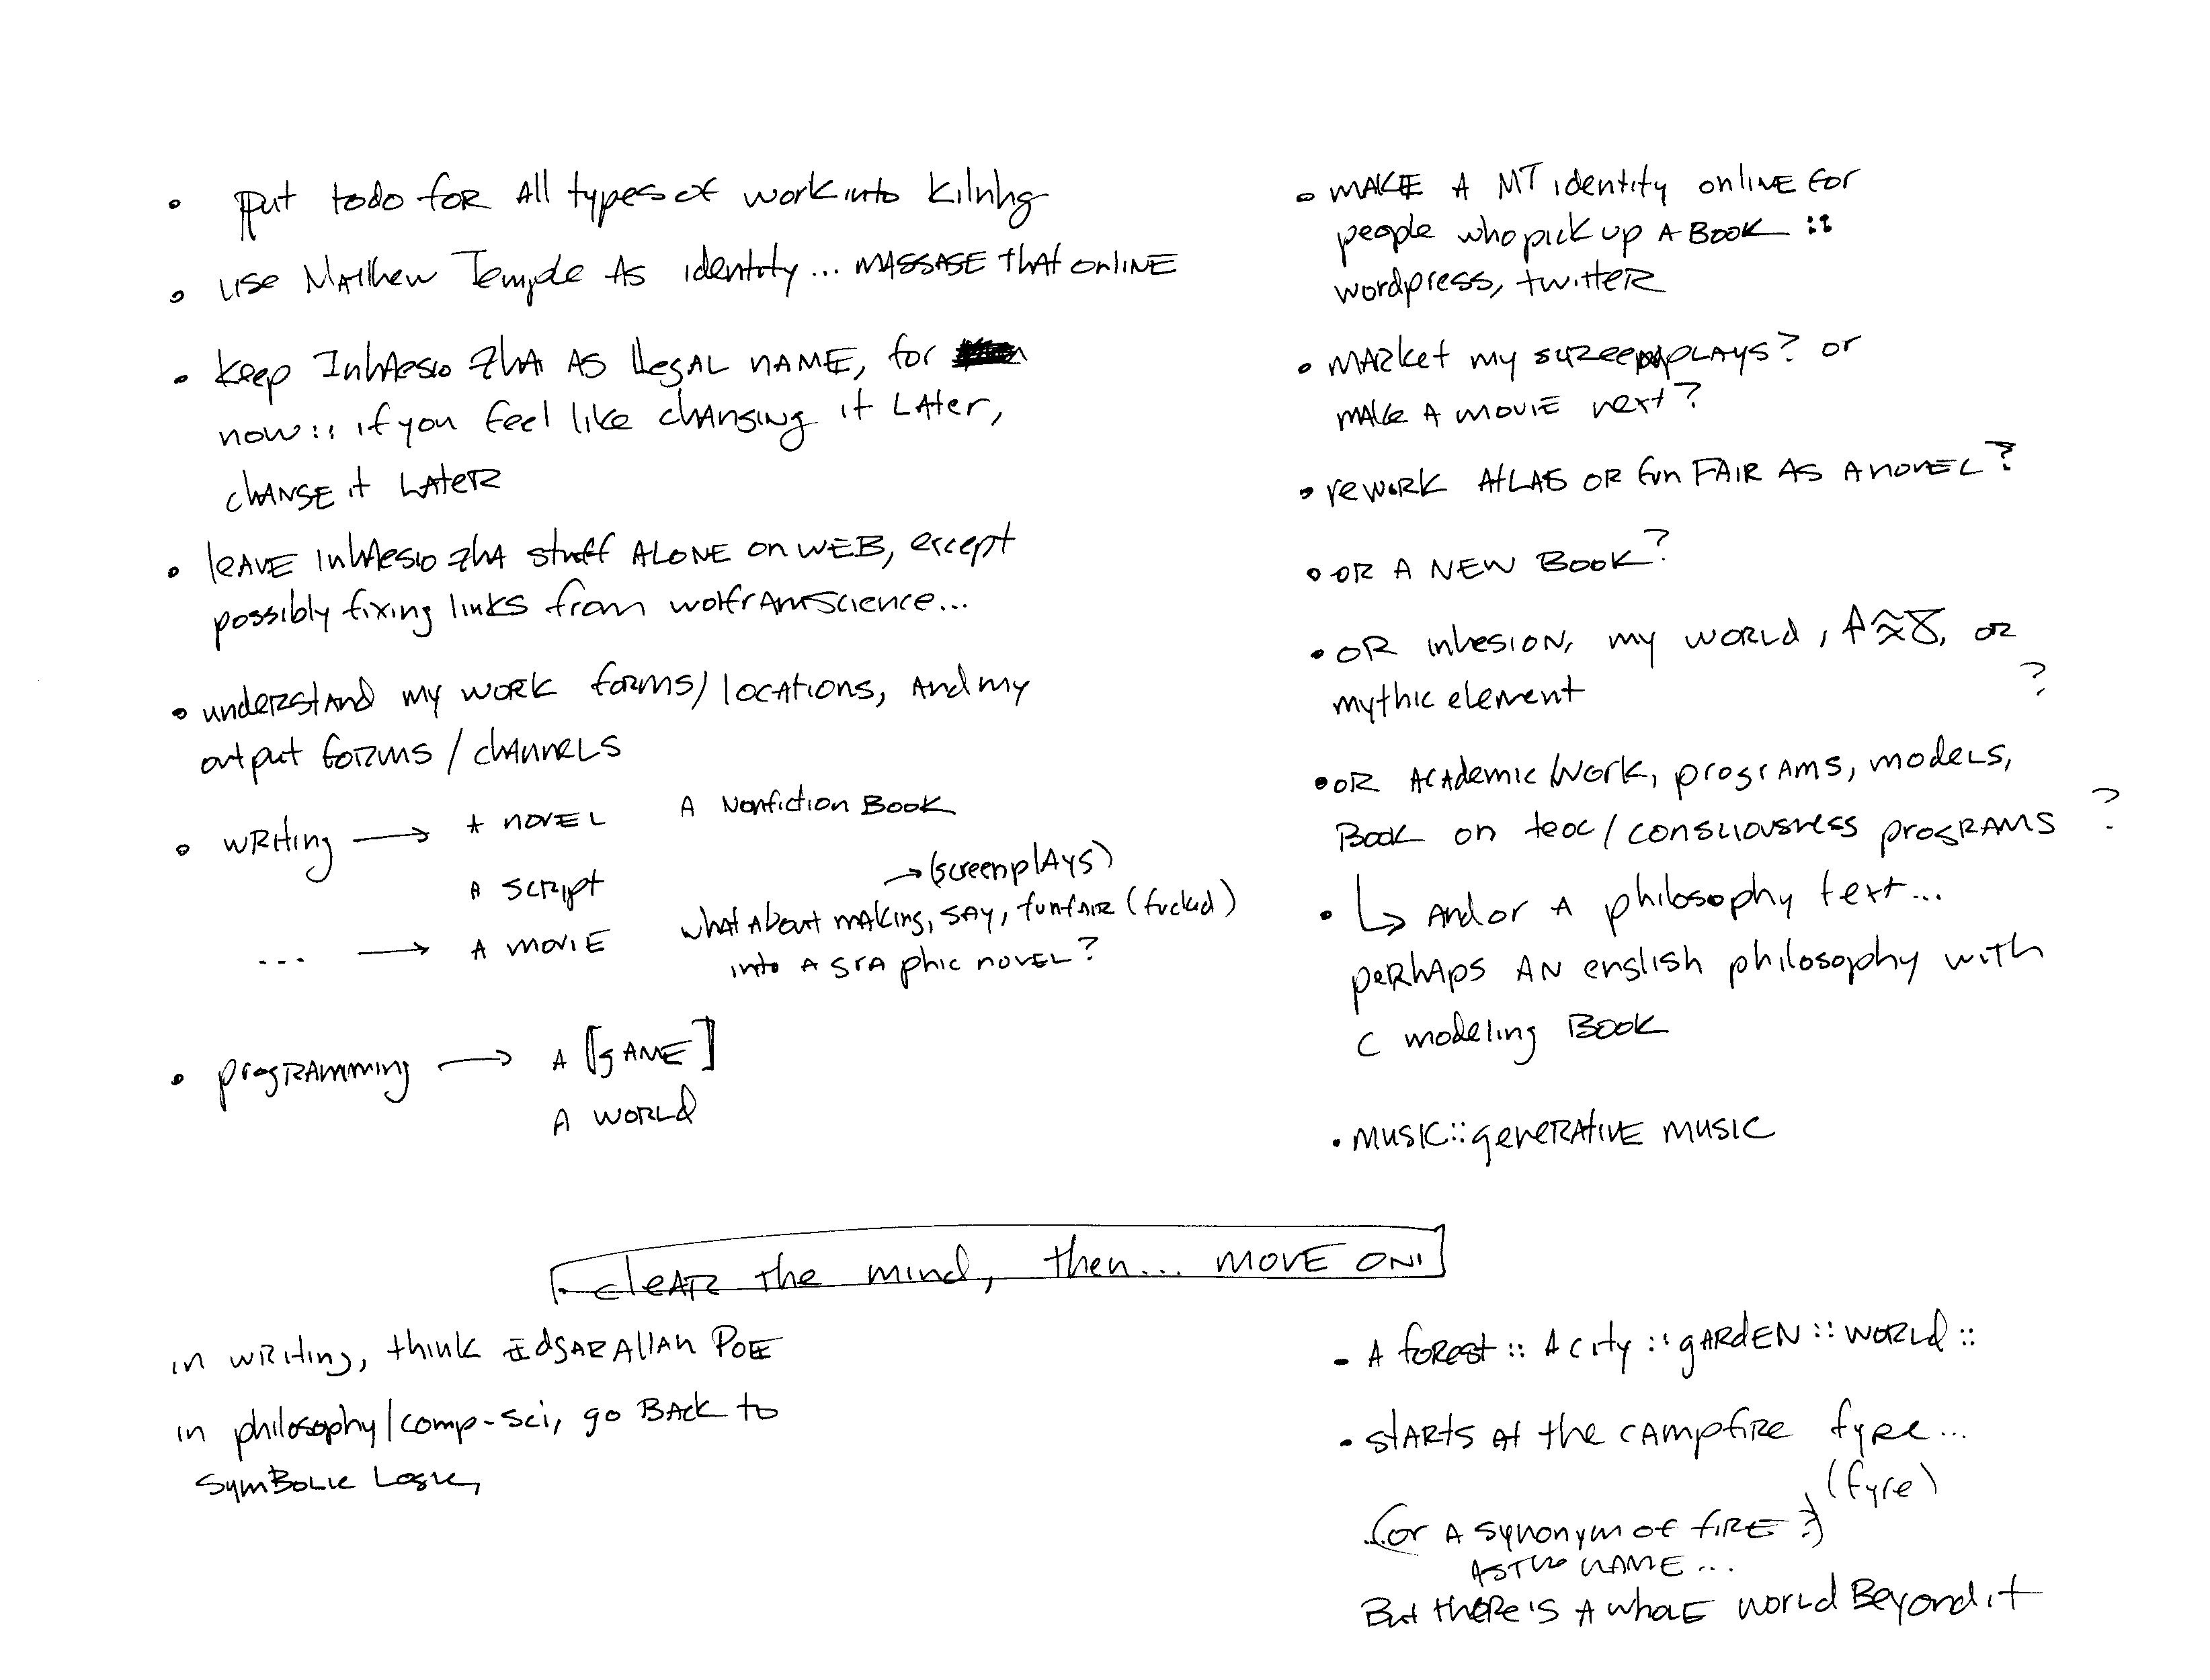 • put todo for All types of work into Kilnhg
• use Matthew Temple As identity... MASSAGE that online
• keep Inhaesio Zha AS legal name, for
now:: if you feel like changing it later,
change it later
• leave Inhaesio Zha stuff ALONE on WEB, except
possibly fixing links from wolframscience...
• understand my work forms/locations, and my
output forms / channels
• writing → A novel A Nonfiction Book
A script
→ (screenplays)
... → A movie
what about making, say, funfair (fucked)
into a graphic novel?
• programming → A [game]
A world
• MAKE A MT identity online for
people who pick up A BOOK ::
wordpress, twitter
• market my screenplays? or
make A movie next?
• rework Atlas or fun FAIR AS A novel?
• or A NEW BOOK?
• or inhesion, my world, or
mythic element ?
• or Academic work, programs, models,
Book on teoc/consciousness programs ?
• ↳ And or A philosophy text...
perhaps AN english philosophy with
C modeling Book
• music::generative music
• clear the mind, then... move on!
in writing, think Edgar Allan Poe
in philosophy/comp-sci, go BACK to
Symbolic Logic,
- A forest :: A city :: garden :: world ::
- starts at the campfire fyre...
(fyre)
...(or A synonym of fire?)
AS the name...
But there's A whole world Beyond it